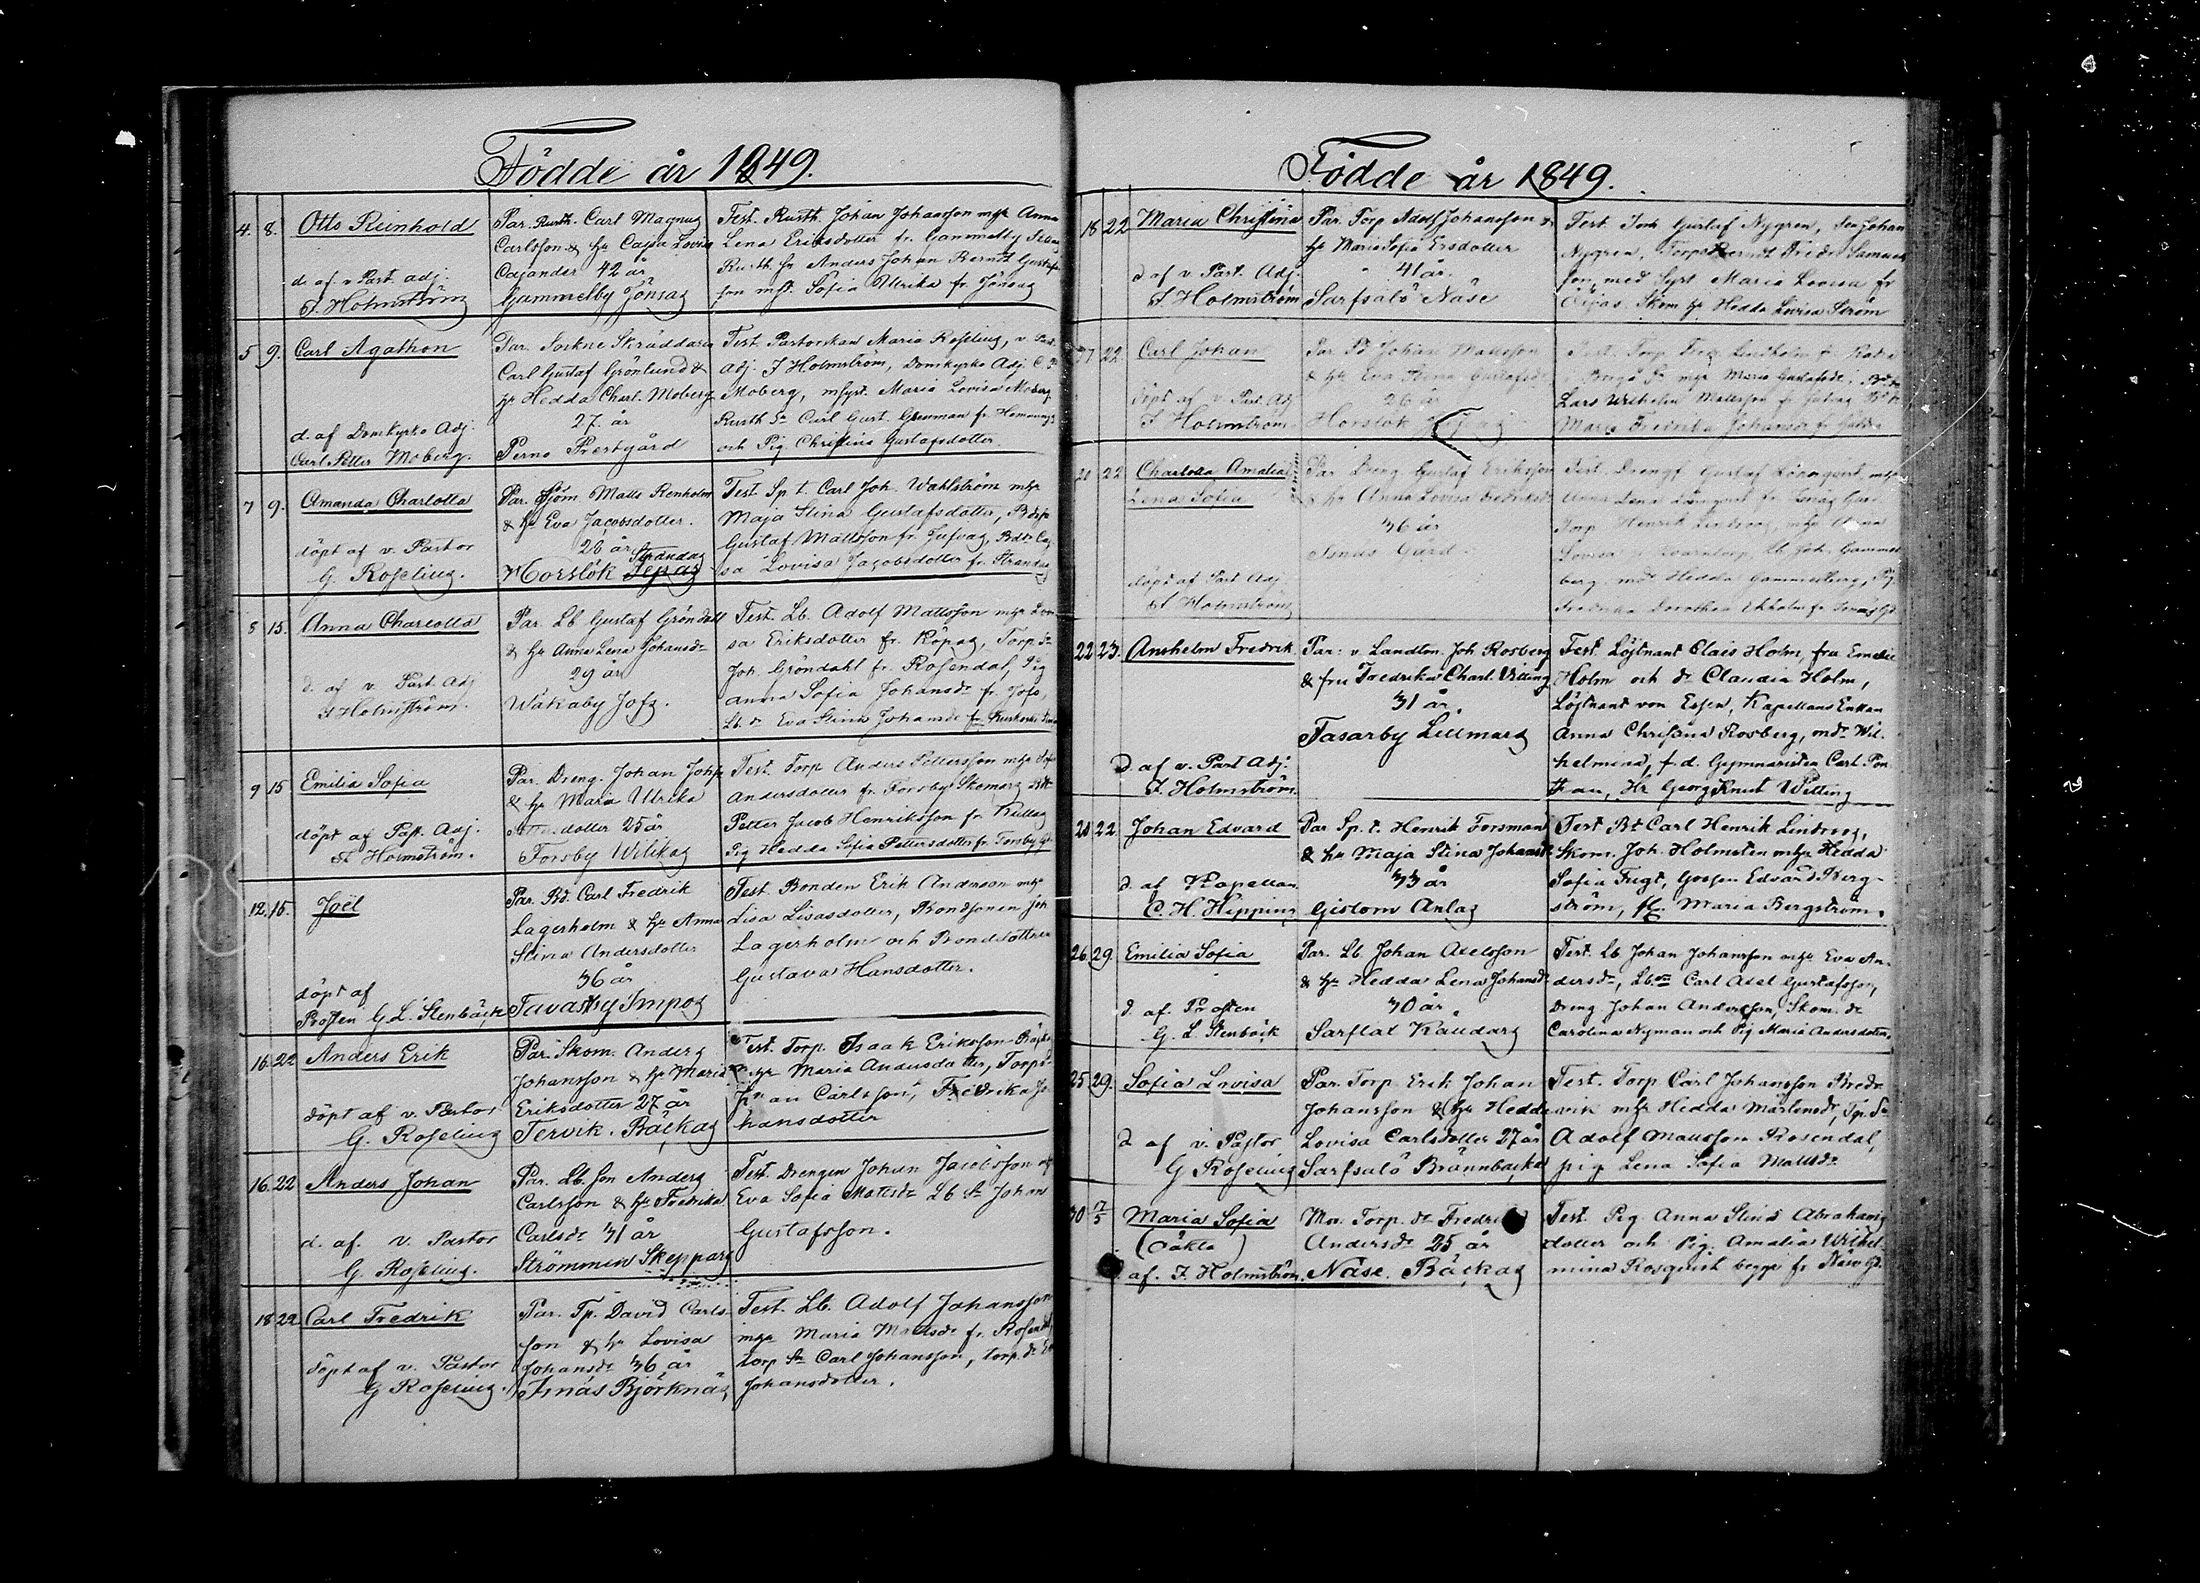 Födde år 1849.
4. 8. Otto Reinhold
d. af v Past. adj.
F. Holmström
Par. Rusth. Carl Magnus
Carlsson & hr Cajsa Lovisa
Cajander 42 år
Gammelby Jönsas
Test. Rusth. Johan Johansson mhr Anna
Lena Eriksdotter fr. Gammelby
Rusth. sn Anders Johan Berndt Gustafs
son mst. Sofia Ulrika fr. Jönsas
5 9. Carl Agathon
d. af Domkyrko Adj.
Carl Petter Moberg.
Par. Sockne Skräddaren
Carl Gustaf Grönlund &
hr Hedda Charl. Moberg
27. år
Perno Prestgård
Test. Pastorskan Maria Roseling, v Past.
Adj. F Holmström, Domkyrko Adj. C. P.
Moberg, mhyst. Maria Lovisa Moberg
Rusth Sn Carl Gust. fr.
och Pig Christina Gustafsdotter.
7 9. Amanda Charlotta
döpt af v. Pastor
G. Roseling.
Par. Sjöm Matts Renholm
& hr Eva Jacobsdotter.
26 år
Strandas
Horslök Tepas
Test. Sp t. Carl Joh. Wahlström mhr
Maja Stina Gustafsdotter, Bdsn
Gustaf Mattsson fr. Tufvas, Bdtr Caj
sa Lovisa Jacobsdotter fr. Strandas
8 15. Anna Charlotta
d. af v. Past. Adj
F Holmström.
Par. Lb Gustaf Gröndahl
& hr Anna Lena Johansdr
29 år
Wåtskby Jofs.
Test. Lb. Adolf Mattsson mhr Lovi
sa Eriksdotter fr. Köpas, Torp. Sn
Joh. Gröndahl fr. Rosendal, Pig
Anna Sofia Johansdr fr. Jofs,
Lb. dr Eva Stina Johansdr fr.
9 15 Emilia Sofia
döpt af Past. Adj.
F. Holmström.
Par. Dreng. Johan Johss
& hr Maria Ulrika
dotter 25 år
Forsby Wilikas
Test. Torp Anders Pettersson mhr Sofia
Andersdotter fr. Forsby Skomars
Petter Jacob Henriksson fr. Kullas
Pig Hedda Sofia Pettersdotter fr. Forsby
12. 15. Joël
döpt af
Prosten G. L. Stenbäck
Par. Bd. Carl Fredrik
Lagerholm & hr Anna
Stina Andersdotter
36 år
Tavastby Impos
Test. Bonden Erik Andersson mhr
Lisa Lisasdotter, Bondsonen Joh
Lagerholm och Bonddottren
Gustava Hansdotter.
16. 22 Anders Erik
döpt af v. Pastor
G. Roseling
Par. Skom. Anders
Johansson & hr Maria
Eriksdotter 27 år
Tervik. Bäckas
Test. Torp. Isaak Eriksson
hr Maria Andersdotter, Torps
Johan Carlsson, Fredrika Jo
hansdotter
16. 22 Anders Johan
d. af. v. Pastor
G. Roseling.
Par. Lb. son Anders
Carlsson & hr Fredrika
Carlsdr 31 år
Strömmen Skeppars
Test. Drengen Johan Jacobsson mhr
Eva Sofia Mattsdr Lb Sn Johan
Gustafsson.
18 22. Carl Fredrik
döpt af v. Pastor
G Roseling.
Par. Tp. David Carls-
son & hr Lovisa
Johansdr 36 år
Isnäs Björknäs,
Test. Lb. Adolf Johansson
mhr Maria Mattsdr fr. Rosendal,
torp Sn Carl Johansson, torp. dr
Johansdotter.
Födde år 1849.
18 22 Maria Christina
d af v. Past. Adj.
F Holmström
Par. Torp Adolf Johansson &
hr Maria Sofia Ersdotter
41 år.
Sarfsalö Näse
Test. Gustaf Nygren, Johan
Nygren, Torps Berndt Fredr. Samuels
son, med Syst Maria Lovisa fr
Skom hr Hedda Lovisa Ström
17 22 Carl Johan
döpt af v. Past. Adj
F Holmström
Par. Bd Johan Mattsson
& hr Eva Stina Gustafsdr
26 år
Horslök
Test. Torp. Fredr Lindholm
Borgå Sn mhr Maria Gustafsdr,
Lars Wilhelm Mattsson fr
Maria Fredrika Johansdr fr
20 22 Charlotta Amalia
Lena Sofia
döpt af Past Adj
F Holmström
Par Dreng Gustaf Eriksson
& hr Anna Lovisa Fredriksdr
36 år
Isnäs Gård.
Test. Drengs Gustaf Lönnqvist, mhr
Anna Lena Lönnqvist fr. Isnäs Gård
Torp Henrik Lindroos, mhr Anna
Lovisa fr Lb. Joh. Gammel
berg, mdr Hedda Gammelberg, Pig
Fredrika Dorothea Ekholm fr. Isnäs Gd.
22 23. Anshelm Fredrik
d af v. Past Adj.
F. Holmström
Par: v. Landtm. Joh Rosberg
& fru Fredrika Charl. Witting
31 år.
Tasarby Lillmars
Test. Löjtnant Claes Holm, fru Emelie
Holm och dr Claudia Holm,
Löjtnant von Essen, Kapellans Enkan
Anna Christina Rosberg, mdr Wil-
helmina, f. d. Gymnasisten Carl Pon
tan, Hr. Georg Knut Witting
21 22 Johan Edvard
d. af Kapellan
C. H. Hipping
Par Sp. t. Henrik Forsman
& hr Maja Stina Johansdr
33 år
Gislom Anlas
Test Bt Carl Henrik Lindroos,
Skom. Joh. Holmsten mhr Hedda
Sofia Gossen Edvard Berg-
ström, Maria Bergström.
26. 29. Emilia Sofia
d af. Prosten
G. L Stenbäck
Par. Lb. Johan Axelsson
& hr Hedda Lena Johansdr
30 år.
Sarflax Kaudars
Test. Lb Johan Johansson mhr Eva An-
dersdr, Lbsn Carl Axel Gustafsson,
Dreng Johan Andersson, Skom. dr
Carolina Nyman och Pig Maria Andersdotter
25 29. Sofia Lovisa
d af v. Pastor
G Roseling
Par. Torp Erik Johan
Johansson & hr Hedda
Lovisa Carlsdotter 27 år
Sarfsalö Brännbacka
Test. Torp Carl Johansson Bredt
vik mhr Hedda Mårtensdr, Tp. Sn
Adolf Mattsson Rosendal,
pig Lena Sofia Mattsdr
30 7/5 Maria Sofia
(Oäkta)
af. F. Holmström
Mor. Torp. dr Fredrika
Andersdr 25 år
Näse. Bäckas
Test. Pig. Anna Stina Abrahams
dotter och Pig. Amalia Wilhel-
mina Rosqvist begge fr. Näse Gd.